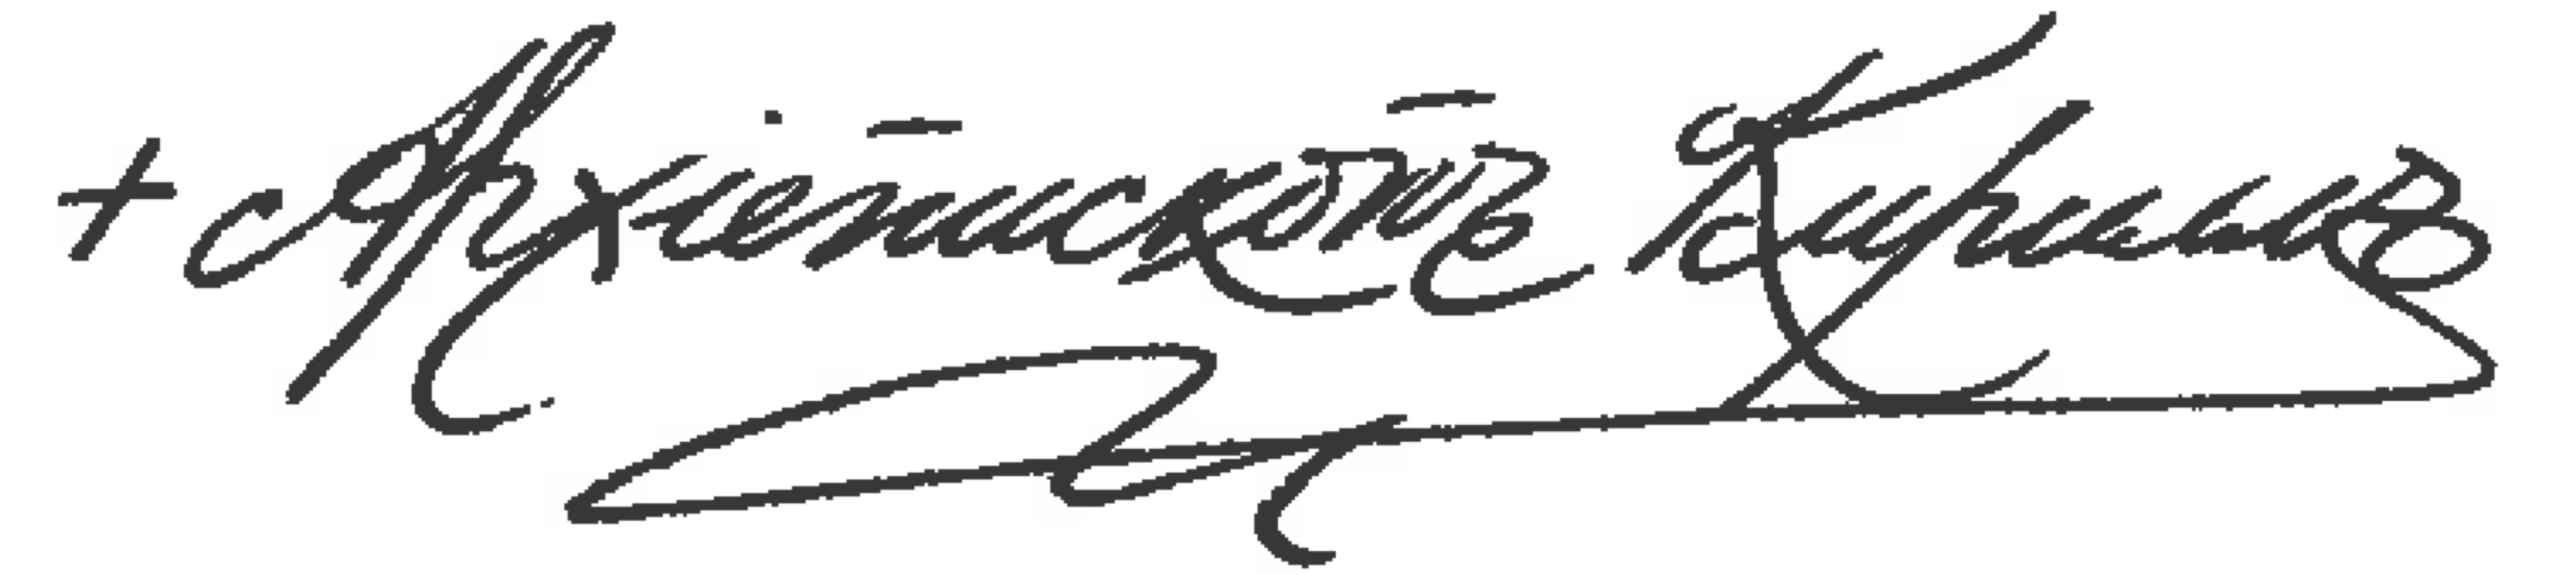 + Архіепископъ Кириллъ